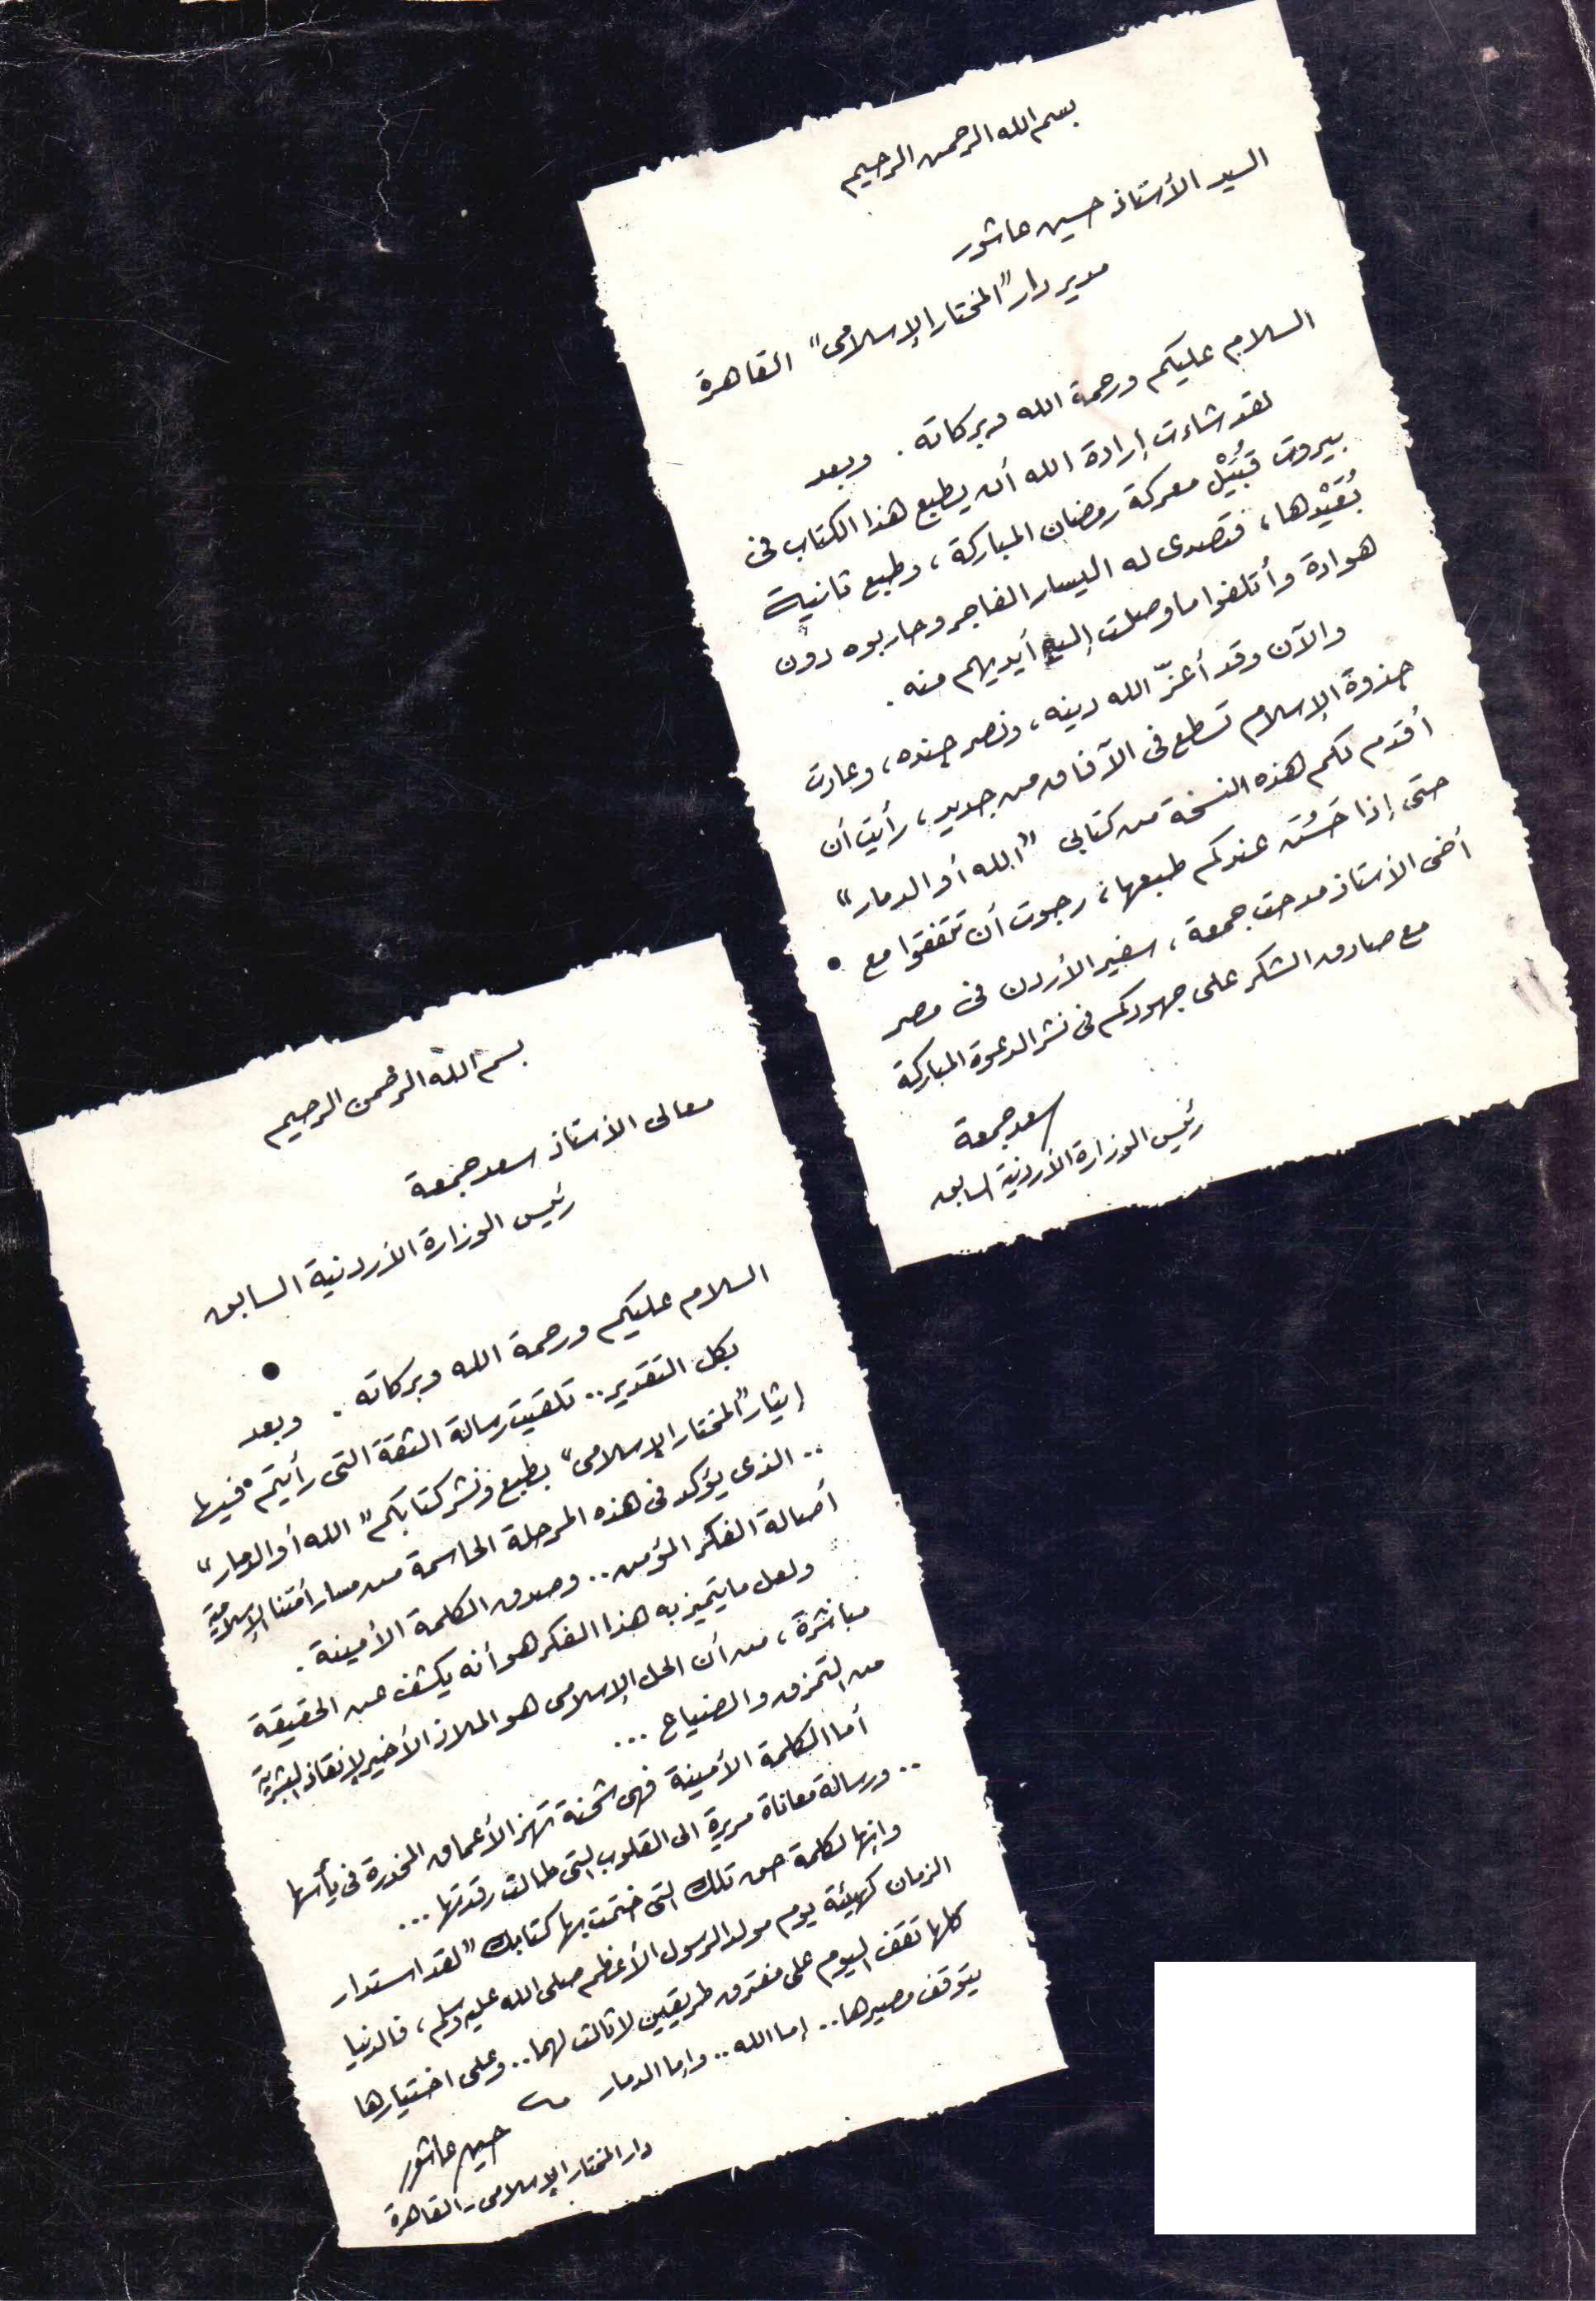 بسم الله الرحمن الرحيم
السيد الأستاذ حسين عاشور
مدير دار "المختار الإسلامى" القاهرة
السلام عليكم ورحمة الله وبركاته . وبعد
لقد شاءت إرادة الله أن يطبع هذا الكتاب فى
بيروت قُبَيْل معركة رمضان المباركة ، وطبع ثانية
بُعَيْدها ، فتصدى له اليسار الفاجر وحاربوه دون
هوادة وأتلفوا ما وصلت إليه أيديهم منه .
والآن وقد أعزّ الله دينه ، ونصر جنده ، وعادت
جذوة الإسلام تسطع فى الآفاق من جديد ، رأيت أن
أقدم لكم هذه النسخة من كتابى "الله أو الدمار"
حتى إذا حَسُن عندكم طبعها ، رجوت أن تتفقوا مع
أخى الأستاذ مدحت جمعة ، سفير الأردن فى مصر
مع صادق الشكر على جهودكم فى نشر الدعوة المباركة
سعد جمعة
رئيس الوزارة الأردنية السابق
بسم الله الرحمن الرحيم
معالى الأستاذ سعد جمعة
رئيس الوزارة الأردنية السابق
السلام عليكم ورحمة الله وبركاته . وبعد
بكل التقدير .. تلقيت رسالة الثقة التى رأيتم فيها
إيثار "المختار الإسلامى" بطبع ونشر كتابكم "الله أو الدمار"
.. الذى يؤكد فى هذه المرحلة الحاسمة من مسار أمتنا الإسلامية
أصالة الفكر المؤمن .. وصدق الكلمة الأمينة .
ولعل ما يتميز به هذا الفكر هو أنه يكشف عن الحقيقة
مباشرة ، من أن الحل الإسلامى هو الملاذ الأخير لإنقاذ البشرية
من التمزق والضياع ...
أما الكلمة الأمينة فهى شحنة تهز الأعماق المخدرة فى يأسها
.. ورسالة معاناة مريرة الى القلوب التى طالت رقدتها ...
وانها لكلمة حق تلك التى اختتمت بها كتابك "لقد استدار
الزمان كهيئة يوم مولد الرسول الأعظم صلى الله عليه وسلم ، فالدنيا
كلها تقف اليوم على مفترق طريقين لا ثالث لهما .. وعلى اختيارها
يتوقف مصيرها .. إما الله .. وإما الدمار
حسين عاشور
دار المختار الإسلامى - القاهرة